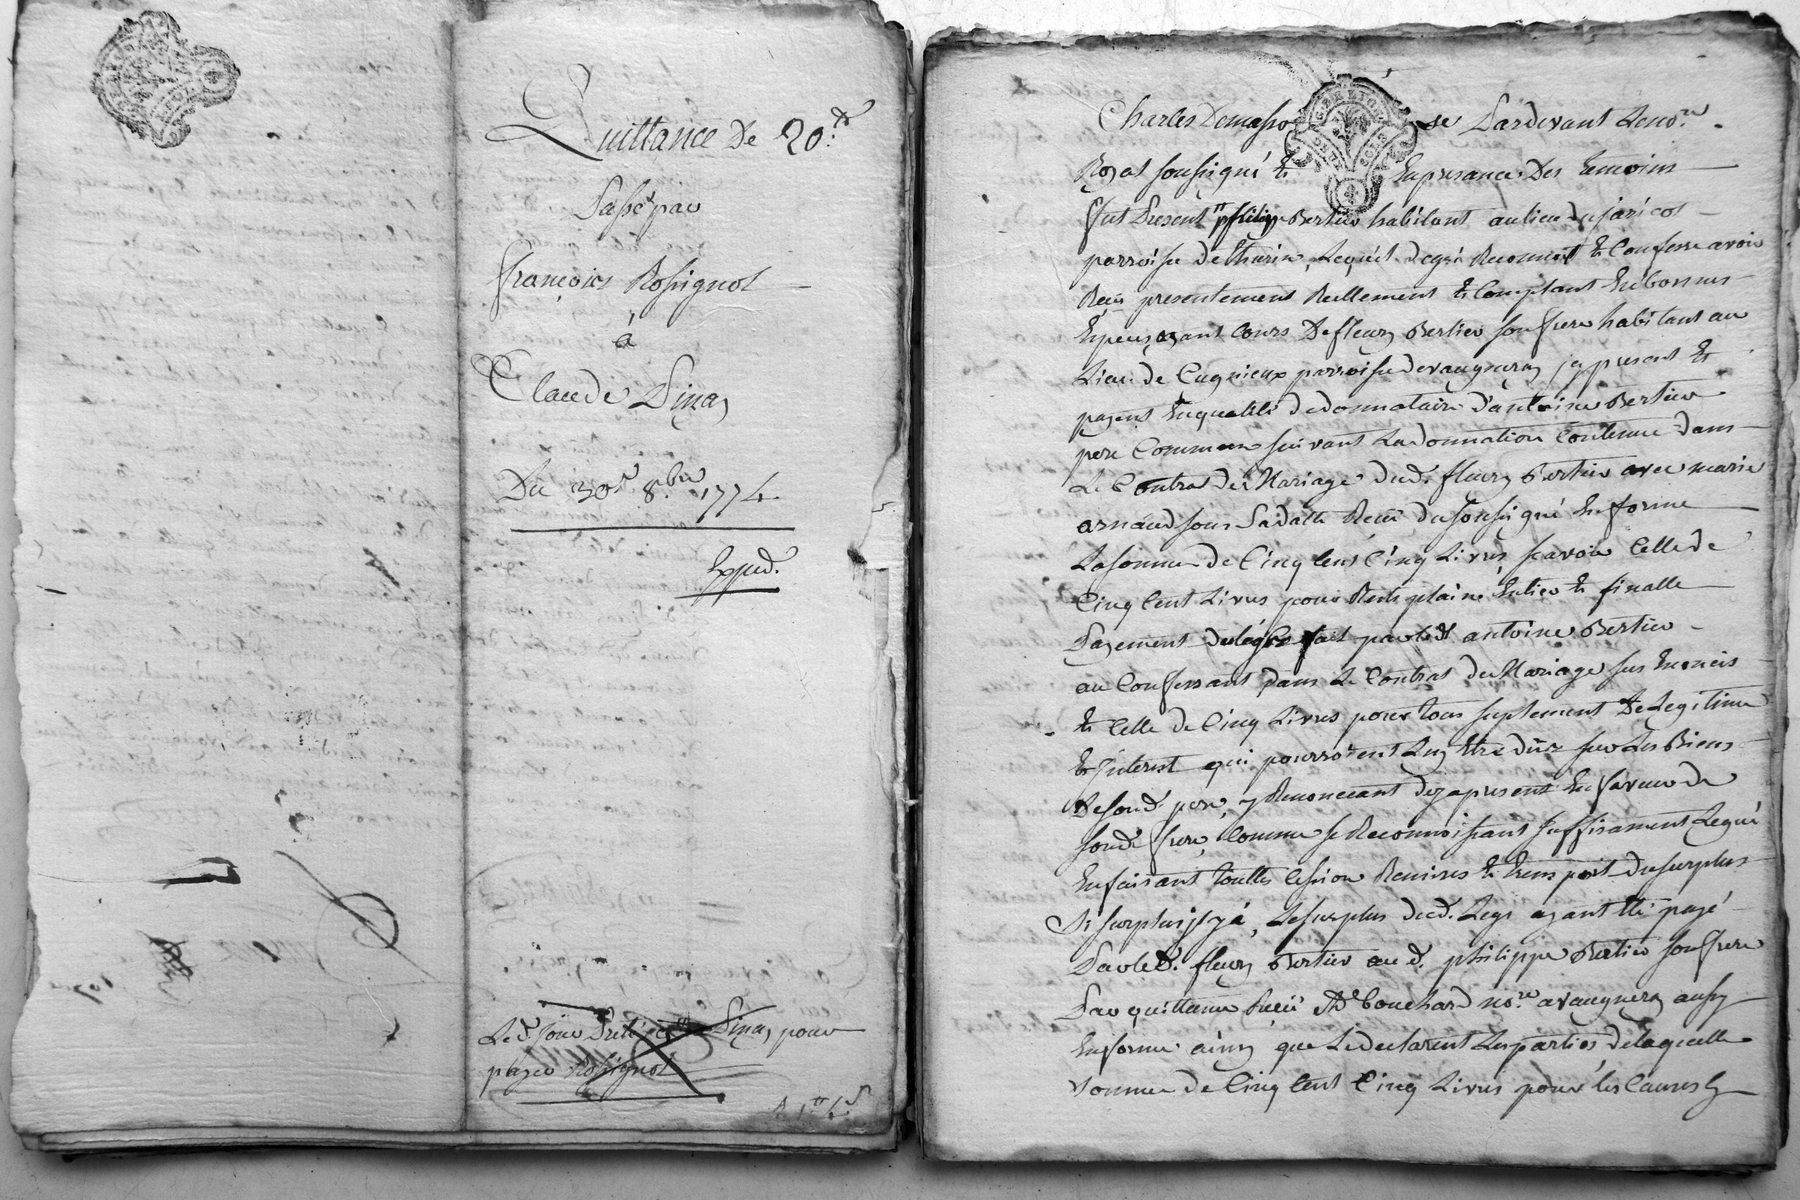 Quittance De 20.ᵗᵗ
Passé par
françois Rossignol
à
Claude Pinay
Du 30.ᵉ 8.bre 1774
Exped.
Led. jour Pinay pour
payer Rossignol
Charles Demasso Pardevant Leno.re
Royal soussigné & Enpresance Des temoins
fut Present sr philippe Bertier habitant aulieu du jaricot
parroisse de thurin, Lequel degré Reconnoit & Confesse avoir
Reçu presentement Reellement & Comptant En bonnes
Espeuses ayant Cours De fleury Bertier son frere habitant au
Lieu de Cugnieux parroisse devaugneray jcy present &
payent Enqualité de donnataire d'antoine Bertier
pere Commun suivant La donnation Contenue dans
Le Contrat de Mariage dud. fleury Bertier avec marie
arnaud sous Sadatte Reçu du soussigné En forme
La somme de Cinq Cent Cinq Livres, scavoir Celle de
Cinq Cent Livres pour Reste plain Entier & finalle
Payement du legs fait par led. antoine Bertier
au Confessant dans Le Contrat de Mariage sus Enoncés
& Celle de Cinq Livres pour tous suplement De Legitime
& Interest qui pourroient Luy Etre dûs sur Les Biens
De sond. pere, y Renoncant dez apresent En faveur de
sond. frere, Comme se Reconnoissant suffisament Legué
En faisant touttes Cession Remises & transport du surplus
Si surplus jl y à, Le surplus dud. Legs ayant été payé
Par led. fleury Bertier aud. philippe Bertier son frere
Par quittance Reçu Me Bouchard no.re avaugneray aussy
En forme ainsy que Le declarent Les parties de laquelle
somme de Cinq Cent Cinq Livres pour les Causes